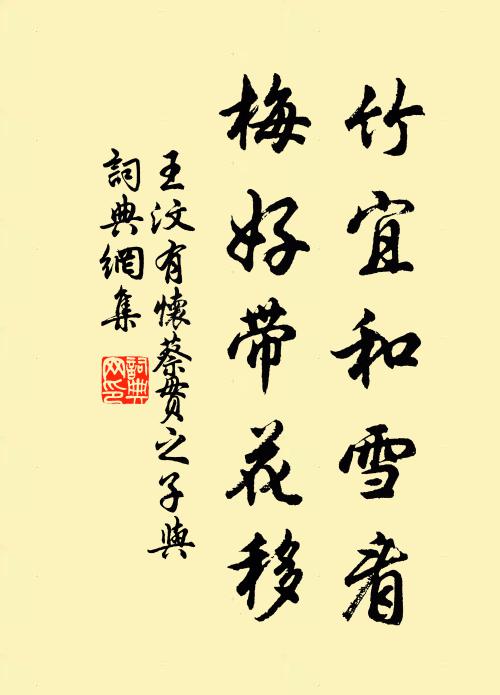 竹宜和雪看
梅好带花移
王汶有懷蔡貫之子與
詞典網集
詞典網印